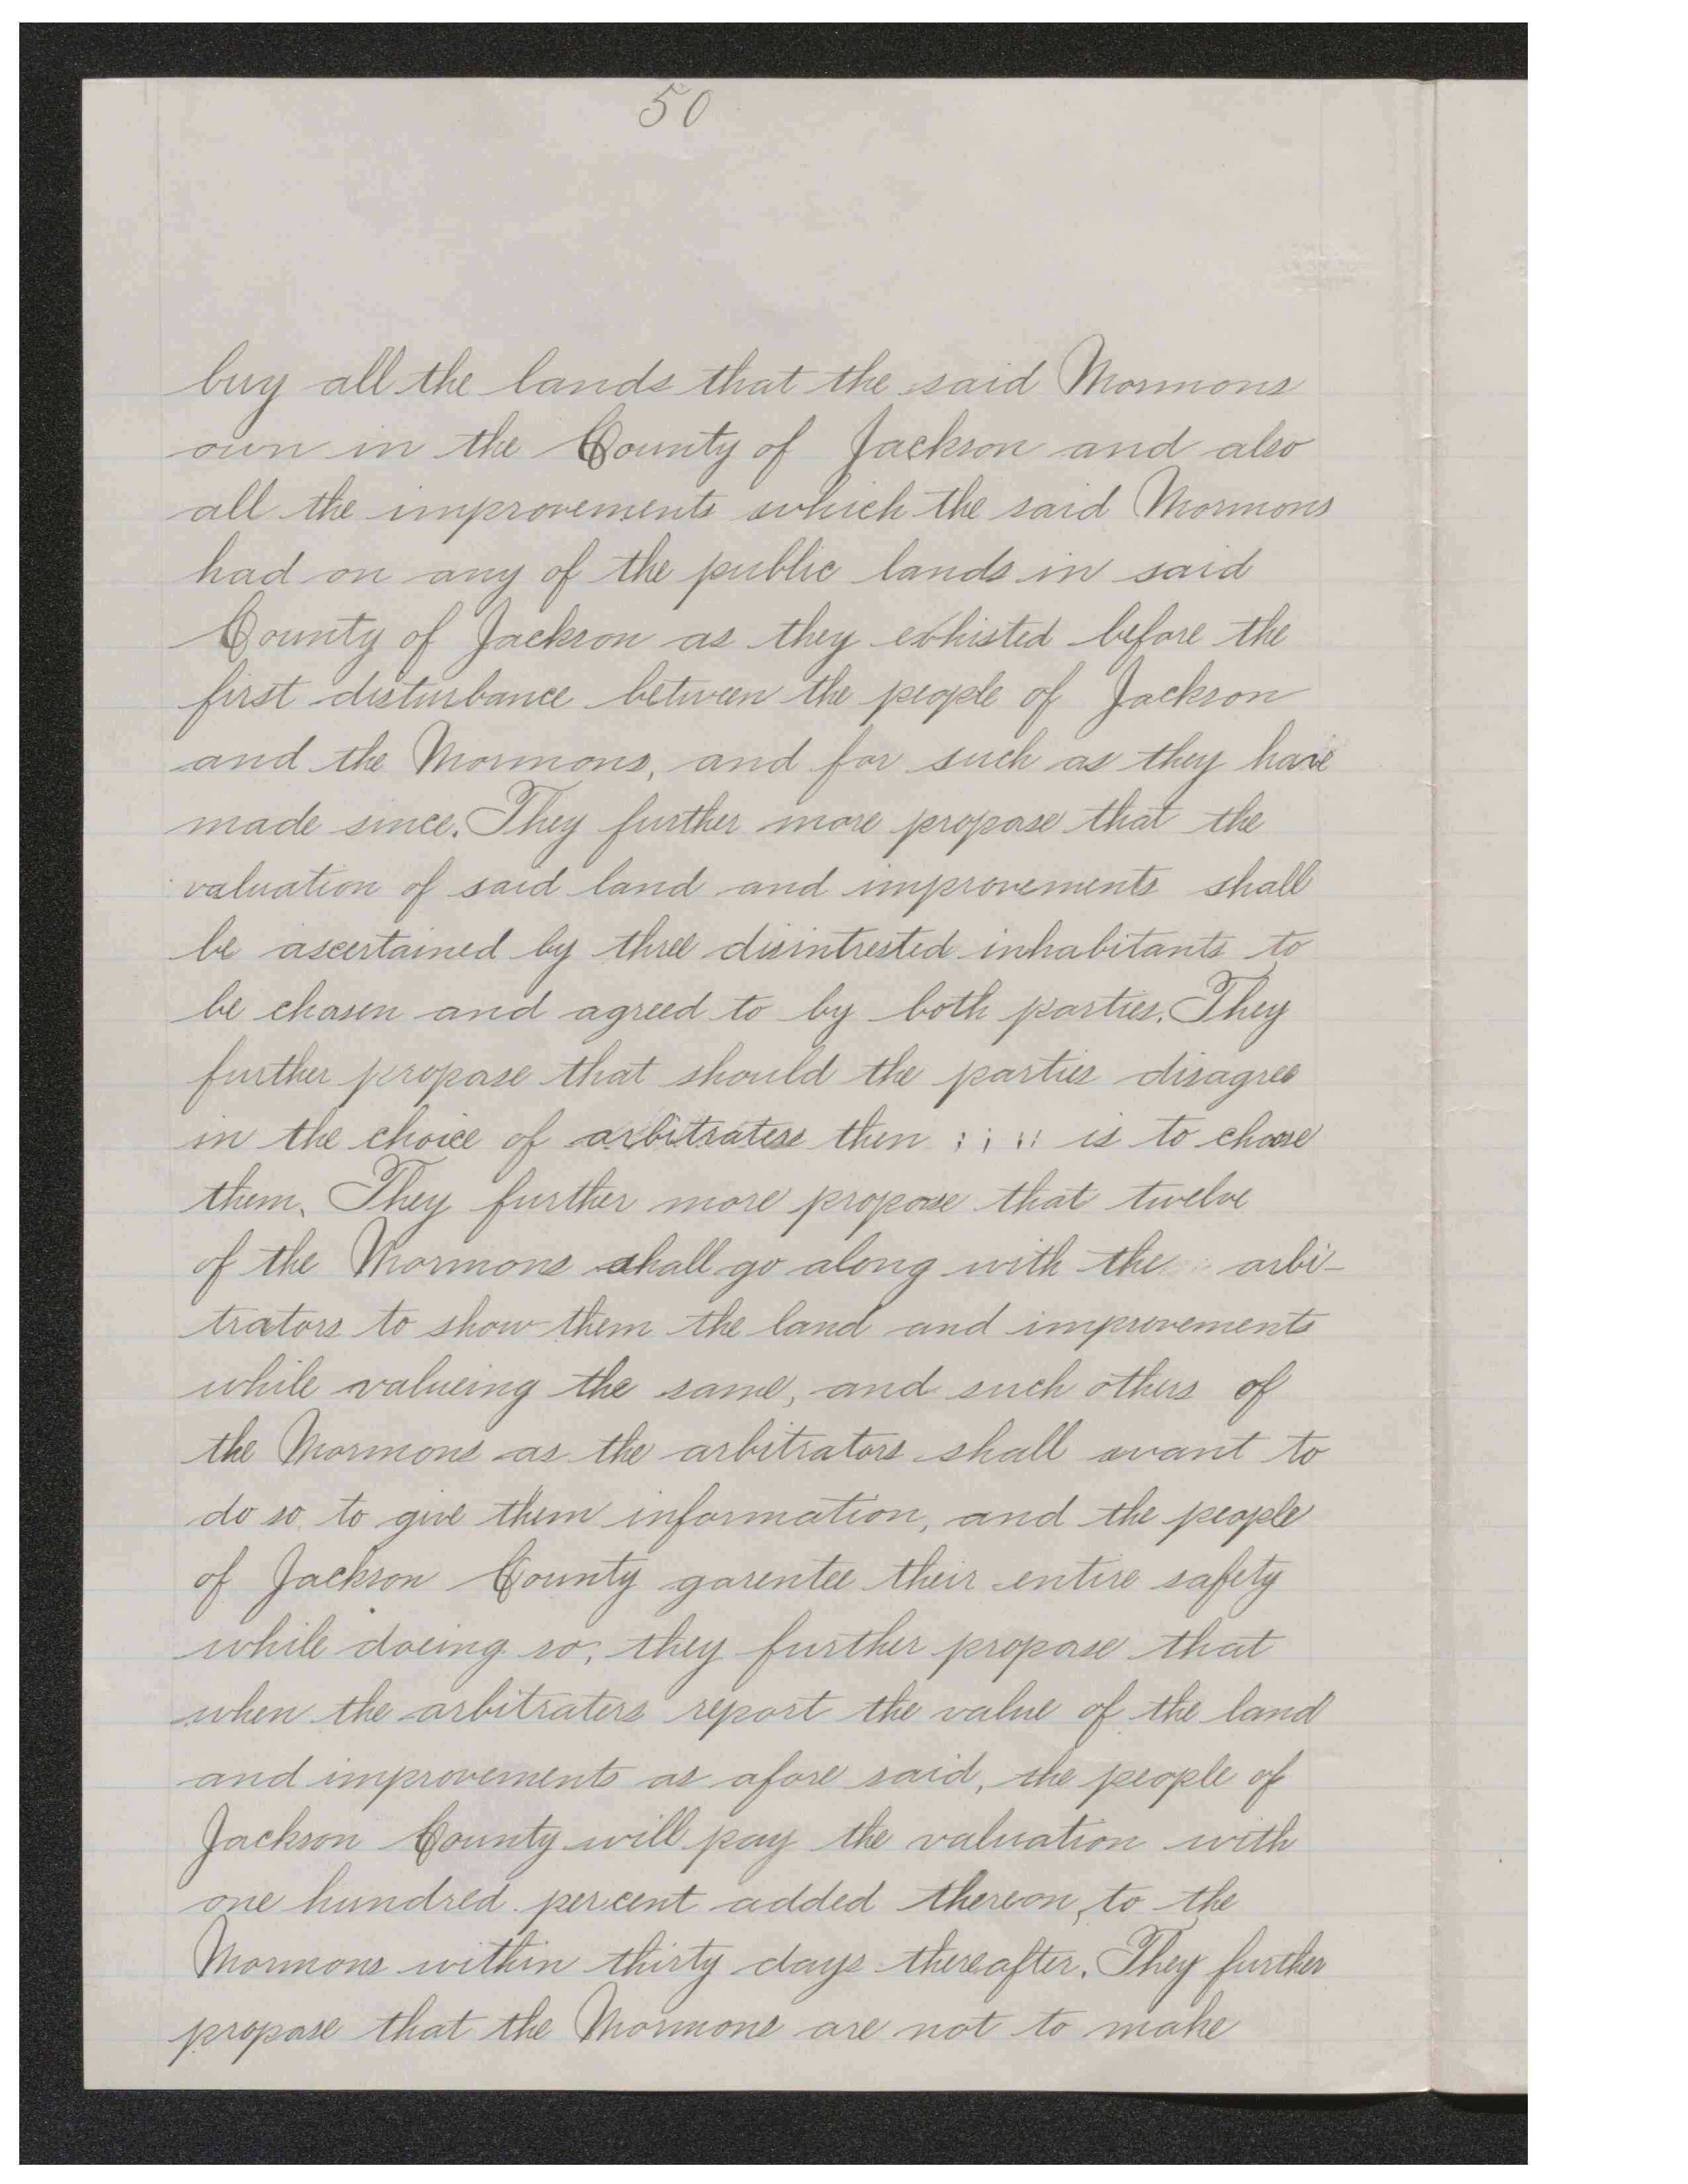 50
buy all the lands that the said Mormons
own in the County of Jackson and also
all the improvements which the said Mormons
had on any of the public lands in said
County of Jackson as they exhisted before the
first disturbance between the people of Jackson
and the Mormons, and for such as they have
made since. They further more propose that the
valuation of said land and improvements shall
be ascertained by three disintrested inhabitants to
be chosen and agreed to by both parties. They
further propose that should the parties disagree
in the choice of arbitraters then : ; : : is to choose
them. They further more propose that twelve
of the Mormons shall go along with the arbi-
trators to show them the land and improvements
while valueing the same, and such others of
the Mormons as the arbitrators shall want to
do so to give them information, and the people
of Jackson County garentee their entire safety
while doeing so; they further propose that
when the arbitraters report the value of the land
and improvements as afore said, the people of
Jackson County will pay the valuation with
one hundred percent added thereon, to the
Mormons within thirty days thereafter. They further
propose that the Mormons are not to make